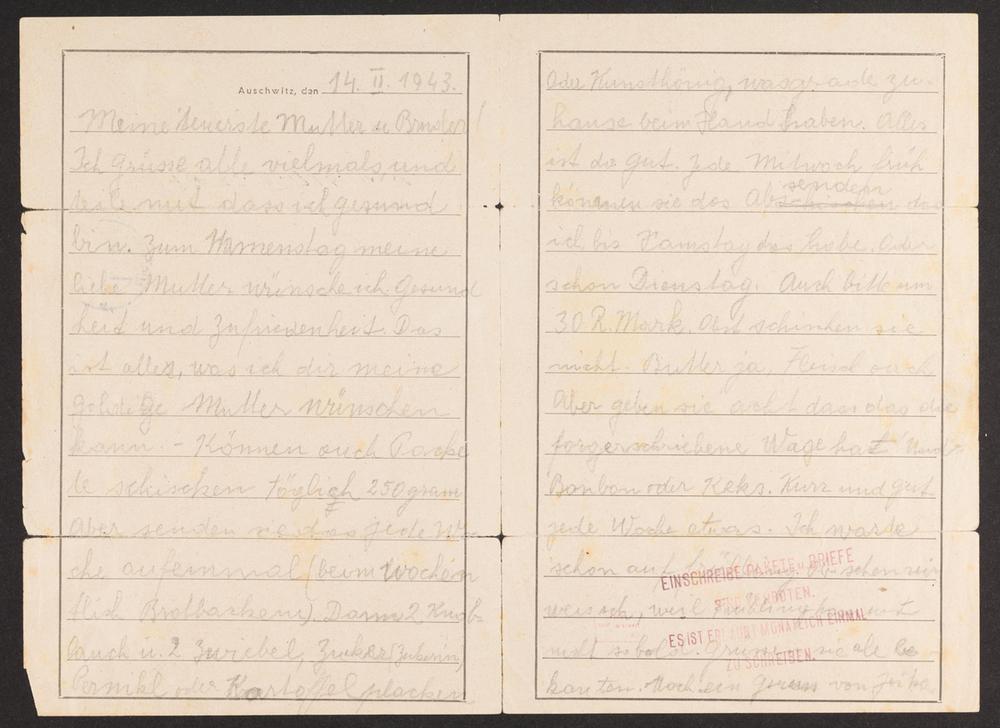 Auschwitz, den 14. II. 1943.
Meine teuerste Mutter u Bruder!
Ich Grüsse alle vielmals und
teile mit dass ich gesund
bin. Zum Namenstag meine
liebe Mutter wünsche ich Gesund
heit und Zufriedenheit. Das
ist alles, was ich dir meine
Mutter wünschen
kann. - Können auch Packe
te schischen täglich 250 gram
Aber senden sie das jede Wo
che aufeinmal (beim wochen
tlich Brotbacken). Dann 2 Knob
lauch u. 2 Zwiebel, Zucker
Pernikl oder Kartoffelplacken
Oder Kunsthönig, was grade zu-
hause beim Hand haben. Alles
ist da gut. Jede Mitwoch früh
senden
können sie das Abschischen das
ich bis Samstag das habe. Oder
schon Dienstag. Auch bitte um
30 R. Mark. Obst schinken sie
nicht. Butter ja, Fleisch auch
Aber geben sie acht dass das die
forgerschriebene Wage hat. Und
Bonbon oder Keks. Kurz und gut
jede Woche etwas. Ich warte
schon auf
weil Frühling
nicht sobald. Grüssen sie alle be
kanten. Noch ein Gruss von
EINSCHREIBE, PAKETE u. BRIEFE
SIND VERBOTEN.
ES IST ERLAUBT MONATLICH EINMAL
ZU SCHREIBEN.